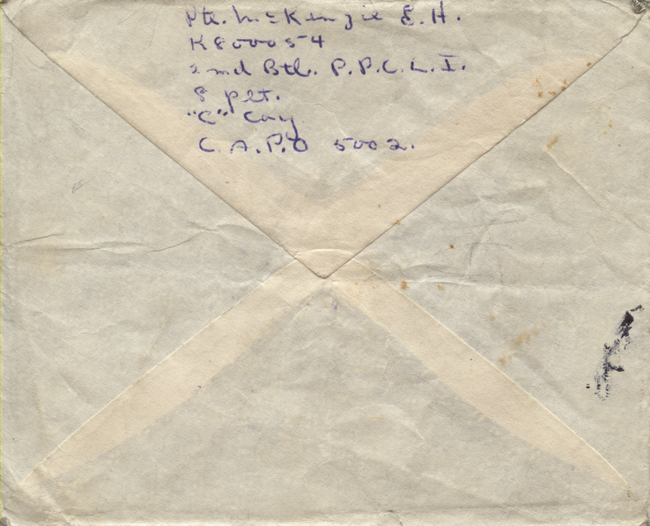 Pte. McKenzie E. H.
K800054
2nd Btl. P.P.C.L.I.
8 plt.
"C" Coy
C.A.P.O 5002.